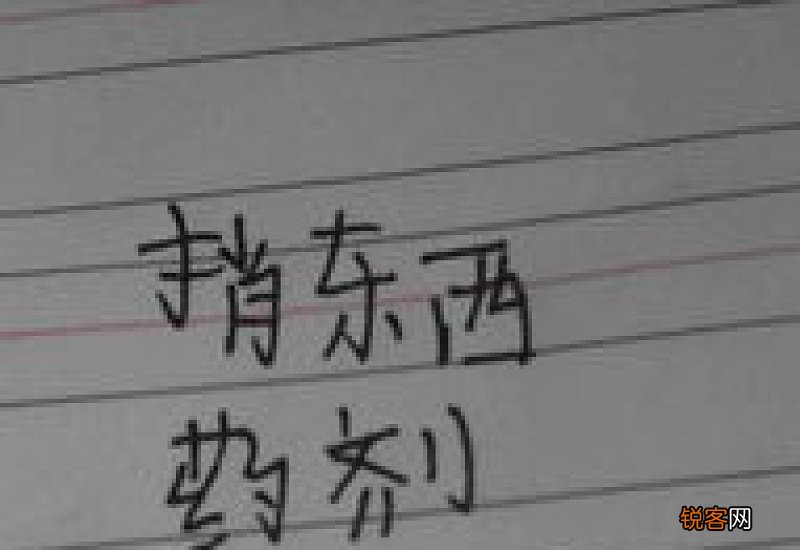 捎东西
药剂
锐客网